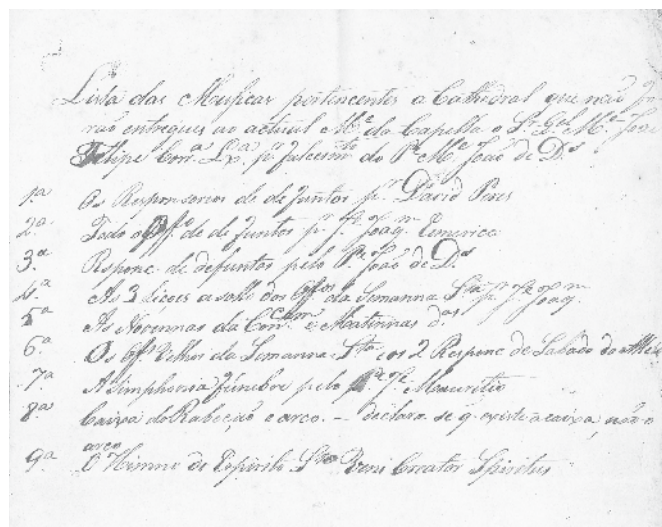 Lista das Musicas pertencentes a Cathedral que não fo
rão entregues ao actual M.e da Capella o Sr. M.e José
Felipe Corr.a Lx.a pr falescim.to do P.e M.e João de D.s
1.a Os Responsorios de defuntos pr. David Peres
2.a Todo o Off.o de defuntos pr. Joaq. Emerico
3.a Respons. de defuntos pelo P. João de D.s
4.a As 3 licoes a sollo dos Off.os da Semanna S.ta pr. Joaq.
5.a As Novennas da Con.cam e Matinnas d.as
6.a Os Off.s Velhos da Semanna S.ta e os 2 Respons de Sabado
7.a A Simphonia funebre pelo P.e J.e Mauritio
8.a Caixa do Rabecão e arco. - declara se q existe a caixa, não o
arco
9.a O Himno do Espirito S.to Veni Creator Spiritus